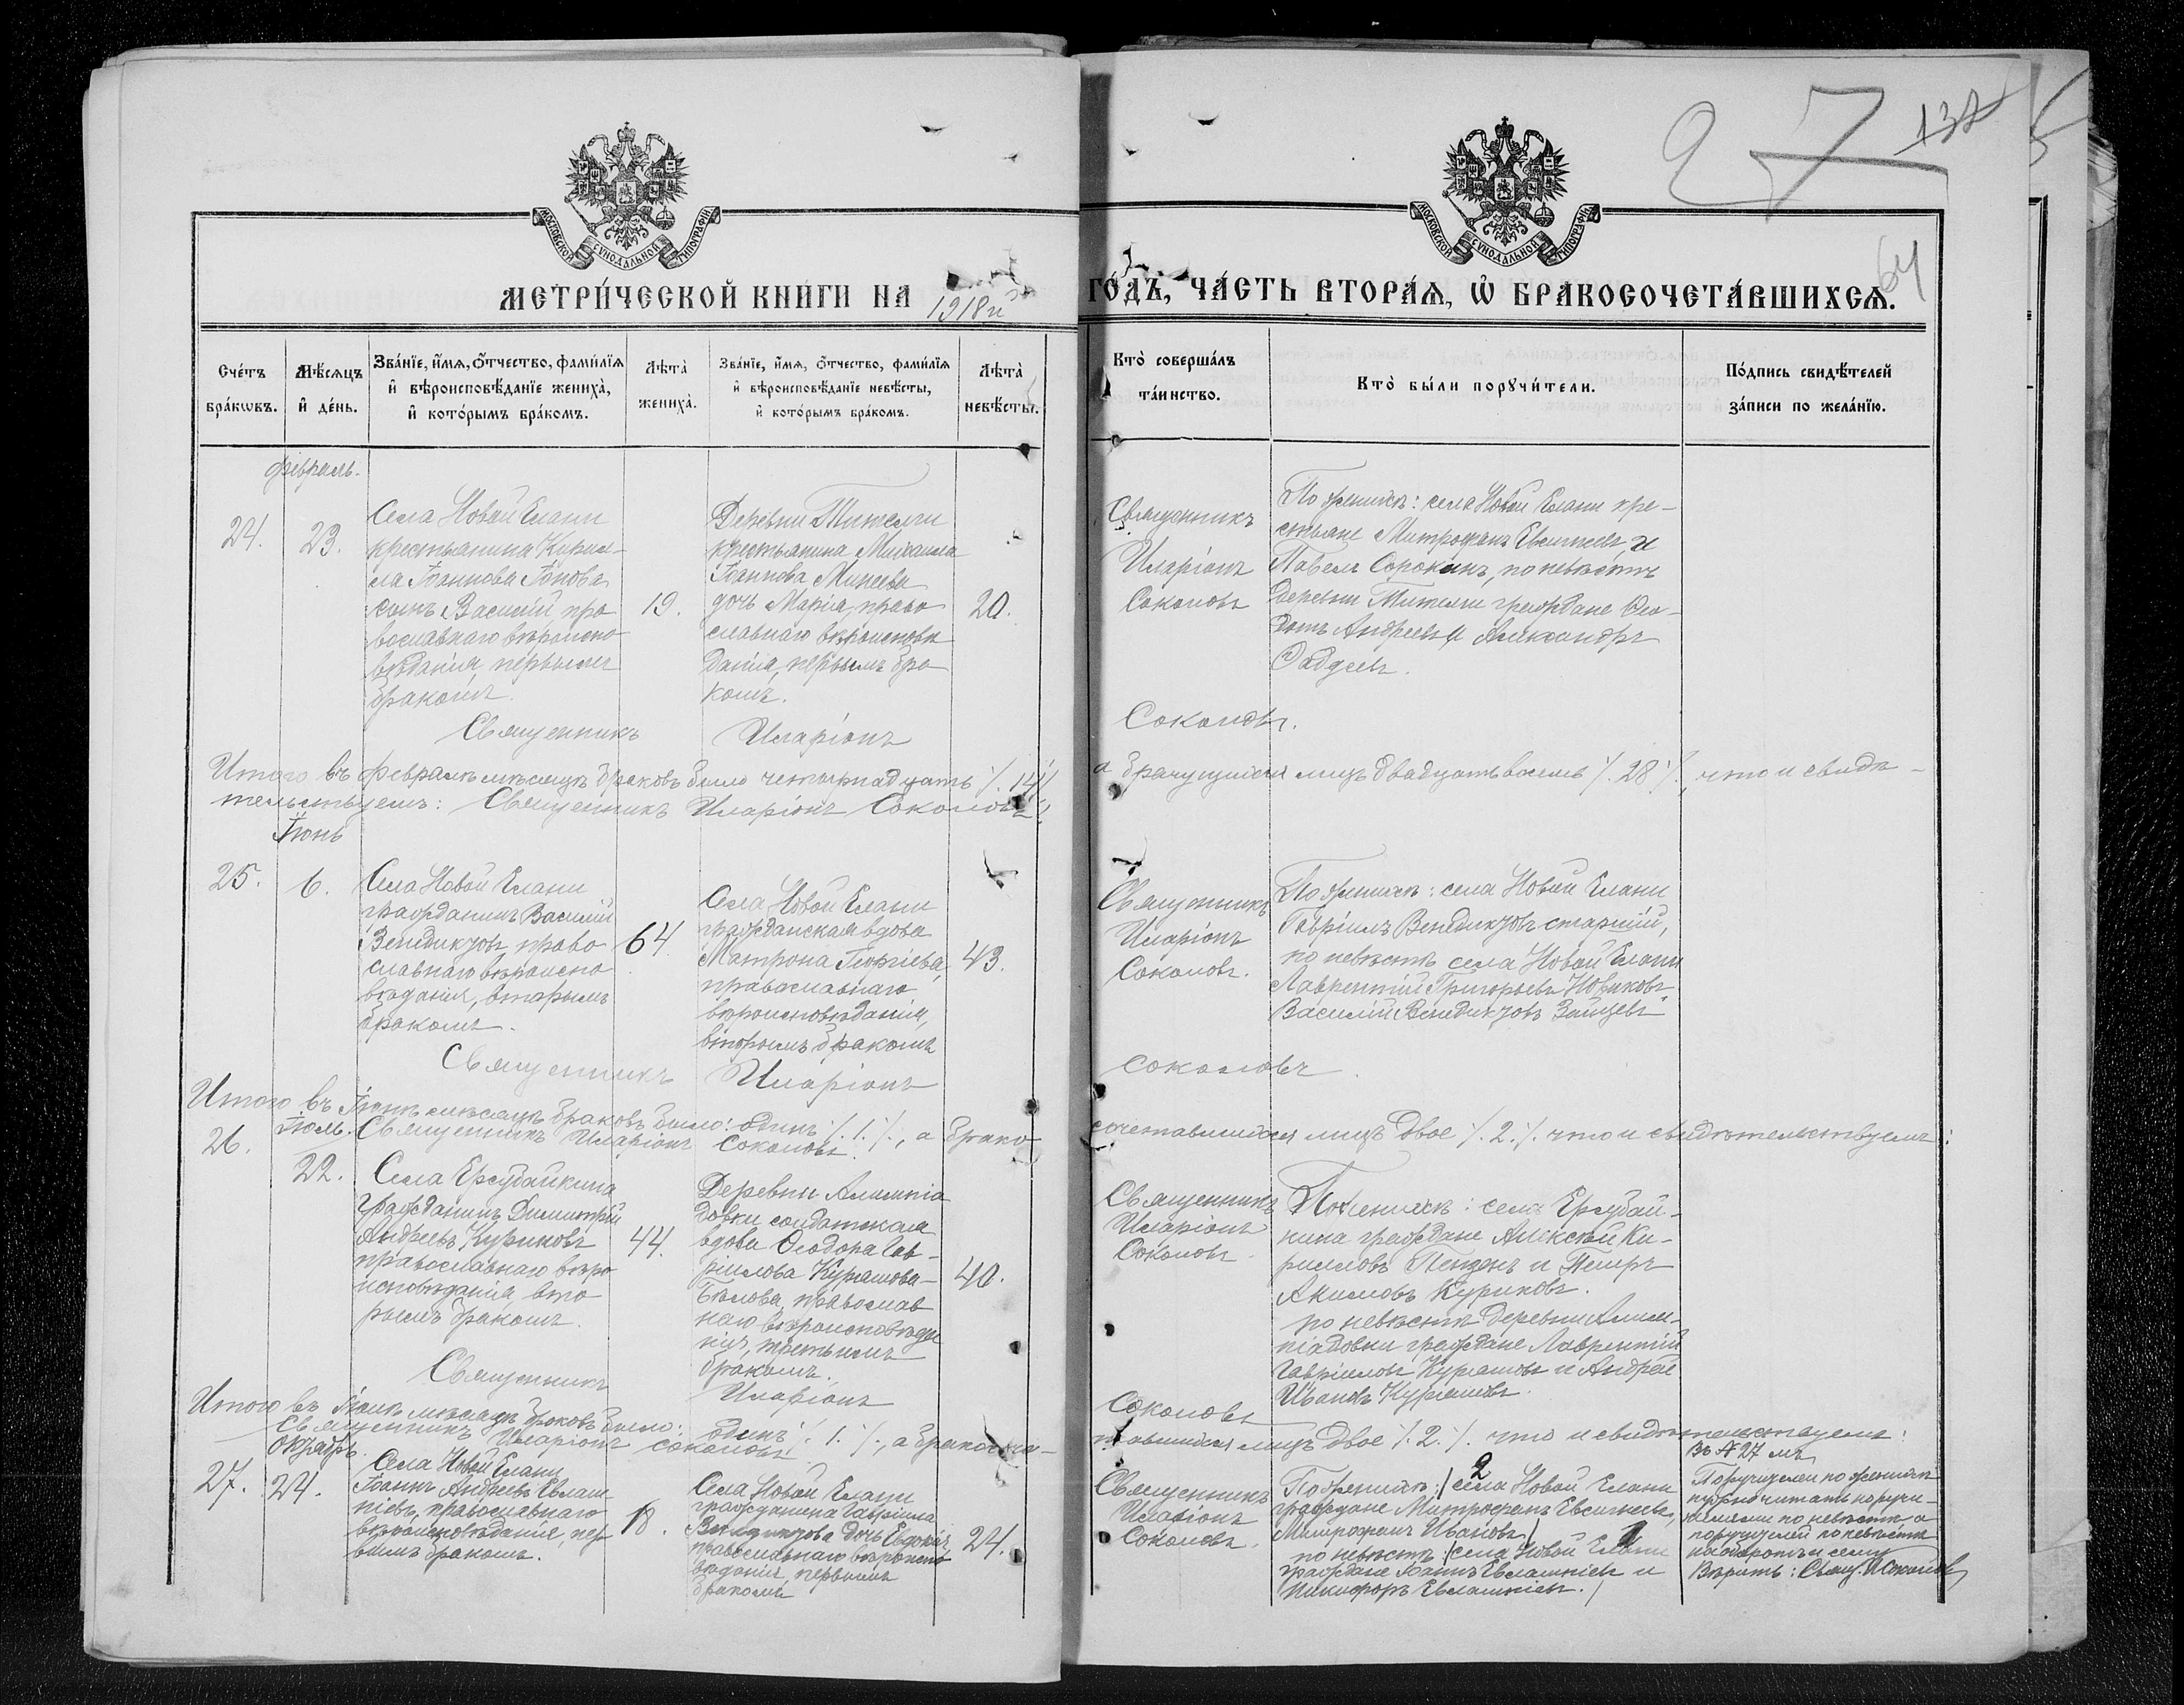 27
137
64
МОСКОВСКОЙ СУНОДАЛЬНОЙ ТИПОГРАФІИ
МОСКОВСКОЙ СУНОДАЛЬНОЙ ТИПОГРАФІИ
МЕТРИ́ЧЕСКОЙ КНИ́ГИ НА 1918й ГО́ДЪ, ЧА́СТЬ ВТОРА́Ѧ, Ѽ БРАКОСОЧЕТА́ВШИХСѦ.
Сче́тъ бра́кѡвъ.
Мѣ́сяцъ и҆ де́нь.
Зва́нїе, и҆́мѧ, о҆́тчество, фами́лїѧ и҆ вѣроисповѣ́данїе жениха̀, и҆ кото́рымъ бра́комъ.
Лѣ́та жениха̀.
Зва́нїе, и҆́мѧ, о҆́тчество, фами́лїѧ и҆ вѣроисповѣ́данїе невѣ́сты, и҆ кото́рымъ бра́комъ.
Лѣ́та невѣ́сты.
Кто̀ соверша́лъ та́инство.
Кто̀ бы́ли порꙋчи́тели.
По́дпись свидѣ́телей за́писи по жела́нїю.
Февраль.
24.
23.
Села Новой Елани
крестьянина Кирил-
ла Іоаннова Попова
сынъ Василій, пра
вославнаго вѣроиспо
вѣданія, первымъ
бракомъ.
19.
Деревни Тителги
крестьянина Михаила
Іоаннова Минеева
дочь Марія, право
славнаго вѣроисповѣ
данія, первымъ бра
комъ.
20.
Священникъ
Иларіонъ
Соколовъ
По женихѣ: села Новой Елани кре-
стьяне Митрофанъ Евсигнеев и
Павелъ Сорокинъ, по невѣстѣ
деревни Тителги граждане Ѳео-
дотъ Андреевъ и Александръ
Фадеевъ.
Священникъ Иларіонъ Соколовъ.
Итого въ Февралѣ мѣсяцѣ браковъ было четырнадцать /.14/. а брачущихся лицъ двадцать восемь /.28./, что и свидѣ-
тельствуемъ: Священникъ Иларіонъ Соколовъ
Іюнь
25.
6.
Села Новой Елани
гражданинъ Василій
Венедиктовъ право
славнаго вѣроиспо
вѣданія, вторымъ
бракомъ.
64.
Села Новой Елани
гражданская вдова
Матрона Георгіева,
православнаго
вѣроисповѣданія,
вторымъ бракомъ
43.
Священникъ
Иларіонъ
Соколовъ.
По женихѣ: села Новой Елани
Гавріилъ Венедиктовъ старшій,
по невѣстѣ села Новой Елани
Лаврентій Григорьевъ Новиковъ
Василій Венедиктовъ Зайцевъ
Священникъ Иларіонъ Соколовъ.
Итого въ Іюнѣ мѣсяцѣ браковъ было: одинъ /.1./., а брако сочетавшихся лицъ двое /.2./. что и свидѣтельствуемъ:
Священникъ Иларіонъ Соколовъ.
Іюль.
26.
22.
Села Ерыбайкина
гражданинъ Димитрій
Андреевъ Куриковъ
православнаго вѣро
исповѣданія, вто
рымъ бракомъ.
44.
Деревни Алимпіа
довки солдатская
вдова Ѳеодора Гав-
ріилова Курашова-
Бѣлова, православ
наго вѣроисповѣда
нія, третьимъ
бракомъ.
40.
Священникъ
Иларіонъ
Соколовъ.
По женихѣ: села Ерыбай-
кина граждане Алексѣй Ки-
рилловъ и Петръ
Акимовъ Куриковъ.
по невѣстѣ деревни Алим-
піадовки граждане Лаврентій
Гавріиловъ Курашовъ и Андрей
Ивановъ Курашовъ.
Священникъ Иларіонъ Соколовъ
Итого въ Іюлѣ мѣсяцѣ браковъ было: одинъ /.1./., а бракосоче-тавшихся лицъ двое /.2./. что и свидѣтельствуемъ:
Священникъ Иларіонъ Соколовъ.
Октябрь.
27.
24.
Села Новой Елани
Іоаннъ Андреевъ Евлам
піевъ, православнаго
вѣроисповѣданія, пер
вымъ бракомъ.
18.
Села Новой Елани
гражданина Гавріила
Венедиктова дочь Евдокія,
православнаго вѣроиспо
вѣданія, первымъ
бракомъ
24.
Священникъ
Иларіонъ
Соколовъ.
2
По женихѣ: / села Новой Елани
граждане Митрофанъ Евсигнеевъ,
Митрофанъ Ивановъ /
1
по невѣстѣ: / села Новой Елани
граждане Іоаннъ Евлампіевъ и
Никифоръ Евлампіевъ. /
Въ № 27 мъ
Поручителей по женихѣ
нужно читать поручи-
телями по невѣстѣ, а
поручителей по невѣстѣ
наоборотъ и сему
Вѣрить: Свящ. И. Соколовъ